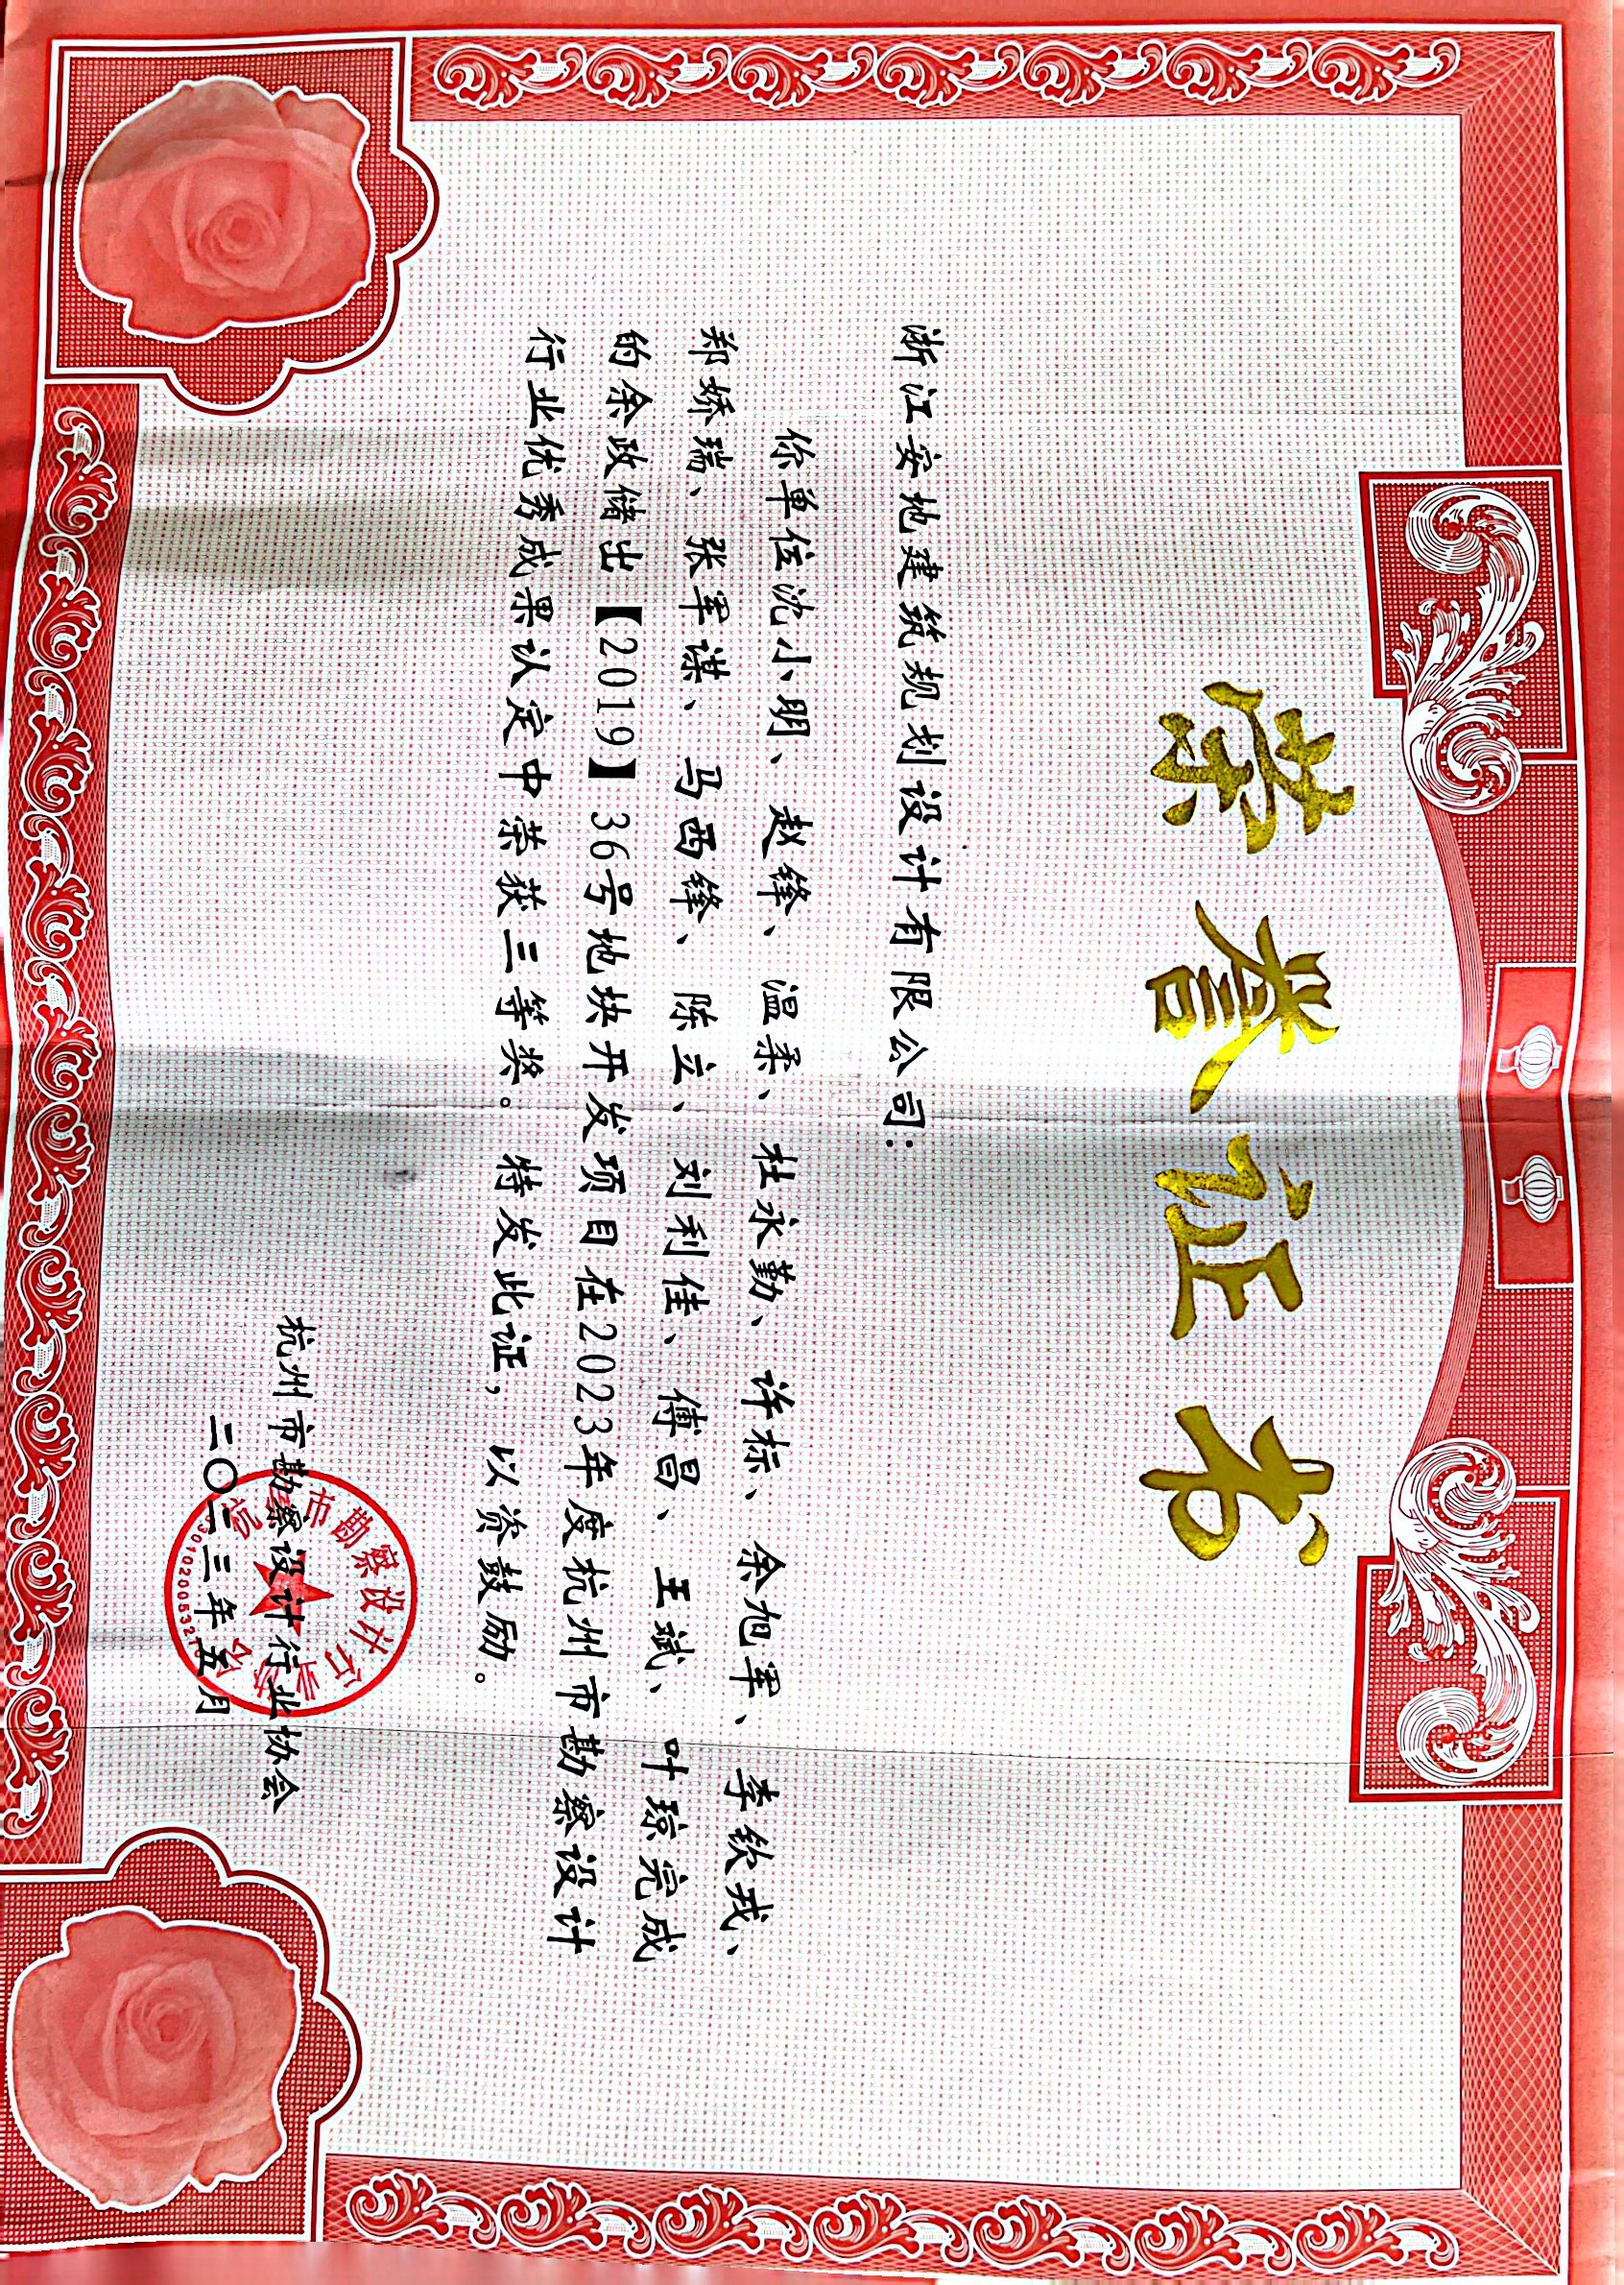 荣誉证书
浙江安地建筑规划设计有限公司：
你单位沈小明、赵锋、温柔、杜永勤、许标、余旭军、李钦我、
郑娇瑞、张军谋、马西锋、陈立、刘利佳、傅昌、王斌、叶琼完成
的余政储出【2019】36号地块开发项目在2023年度杭州市勘察设计
行业优秀成果认定中荣获三等奖。特发此证，以资鼓励。
杭州市勘察设计行业协会
二〇二三年五月
市勘察设计行